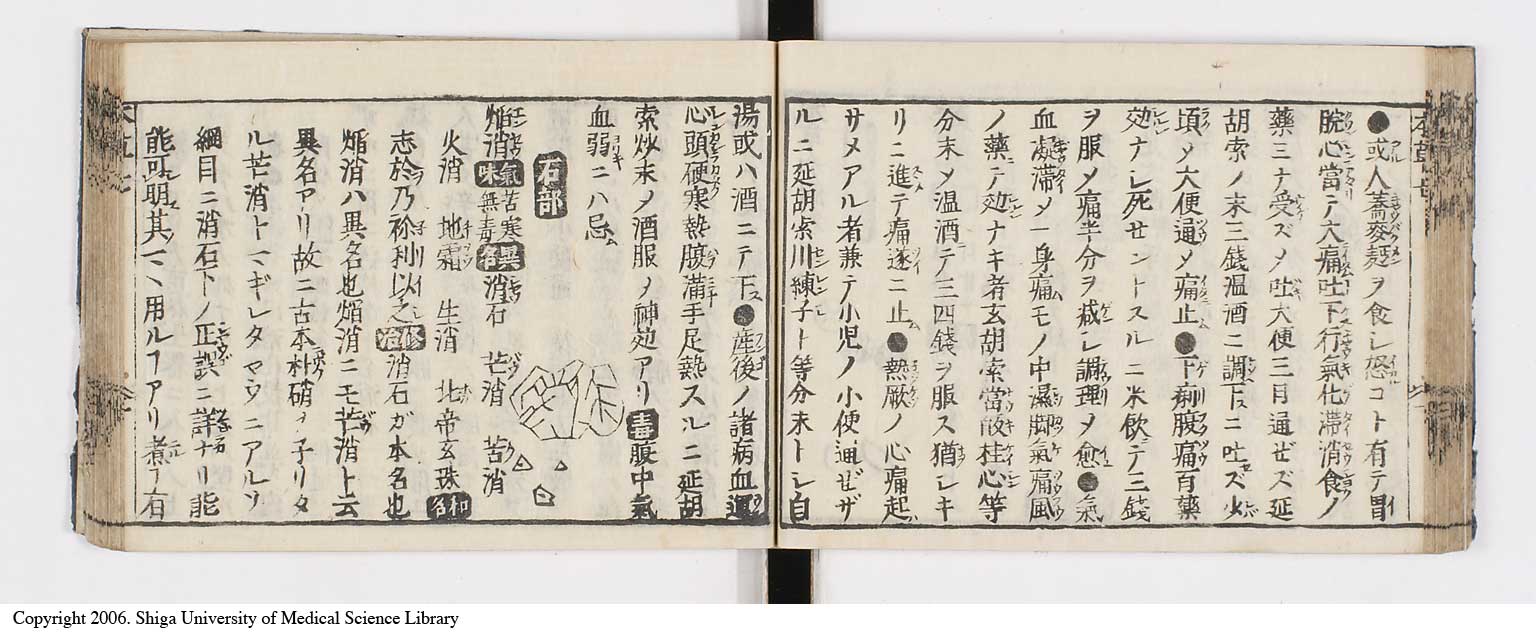 ●或人蕎麥麺ヲ食シ怒コト有テ胃
脘心當テ大痛吐下行氣化滞消食ノ
藥ミナ受ズメ吐大便三日通ゼズ延
胡索ノ末三錢温酒ニ調下スニ吐セズ少
頃メ大便通メ痛止●下痢腹痛百藥
効ナレ死セントスルニ米飲ニテ三錢
ヲ服メ痛半分ヲ减レ調理メ愈●氣
血凝滞メ一身痛ムモノ中濕脚氣痛風
ノ藥ニテ効ナキ者玄胡索當皈桂心等
分末メ温酒ニテ三四錢ヲ服ス猶レキ
リニ進テ痛遂ニ止●熱厥ノ心痛起
サメアル者兼テ小児ノ小便通ゼザ
ルニ延胡索川練子ト等分末トレ自
湯或ハ酒ニテ下ス●産後ノ諸病血運
心頭便寒熱腹滿手足熱スルニ延胡
索炒末ノ酒服メ神効アリ 毒 腹中氣
血弱ニハ忌ム
石部
焔消 氣味 苦寒無毒 異名 消石 芒消 苦消
火消 地霜 生消 北帝玄珠 和名
志於乃祢利以之 修治 消石ガ本名也
焔消ハ異名也焔消ニモ芒消ト云
異名アリ故ニ古本朴硝ヲ子リタ
ル芒消トマギレタマウニアルソ
綱目ニ消石下ノ正誤ニ詳ナリ能
能可明其マヽ用ルフアリ煮フ右
Copyright 2006. Shiga University of Medical Science Library